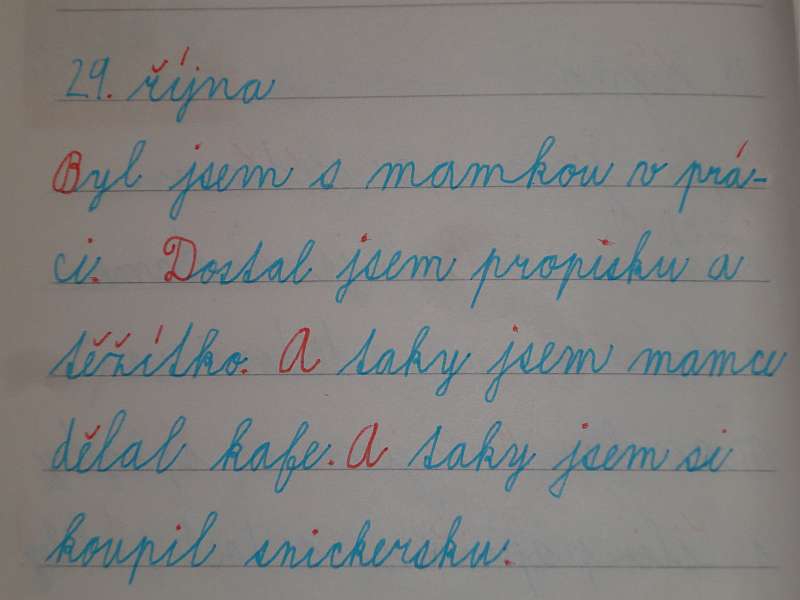 29. října
Byl jsem s mamkou v prá-
ci. Dostal jsem propisku a
těžítko. A taky jsem mamce
dělal kafe. A taky jsem si
koupil snickersku.